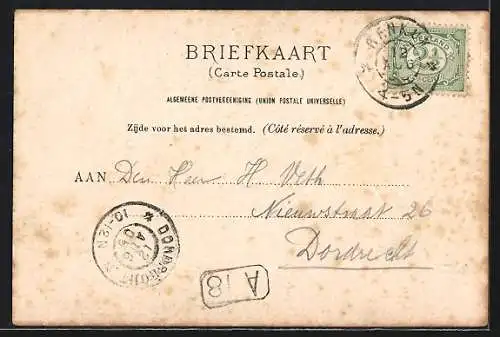 BRIEFKAART
(Carte Postale.)
ALGEMEENE POSTVEREENIGING (UNION POSTALE UNIVERSELLE)
Zijde voor het adres bestemd. (Côté réservé à l'adresse.)
AAN Den Heer H Veth
Nieuwstraat 26
Dordrecht
10-12N
A 18